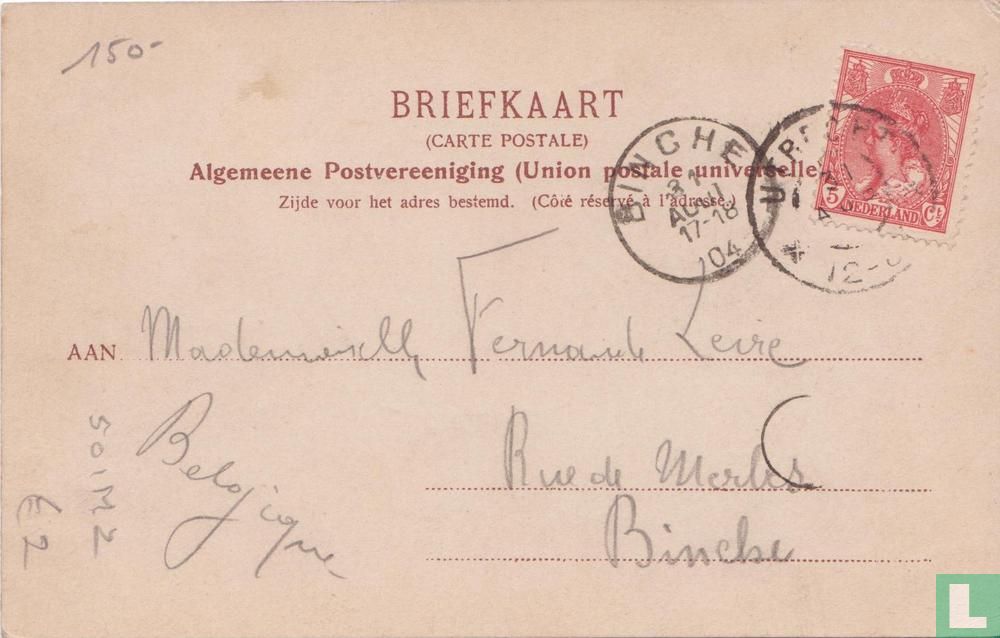 150-
BRIEFKAART
(CARTE POSTALE)
Algemeene Postvereeniging (Union postale universelle)
Zijde voor het adres bestemd. (Côté réservé à l'adresse.)
BINCHE
31
AOUT
17-18
04
UTRECHT
12-
5 NEDERLAND Ct
AAN Mademoiselle Fernande Leire
Belgique
Rue de Merbes
Binche
501M2
€2
L